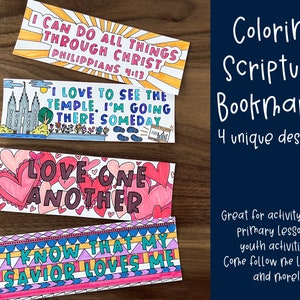 I CAN DO ALL THINGS
THROUGH CHRIST
PHILIPPIANS 4:13
I LOVE TO SEE THE
TEMPLE. I'M GOING
THERE SOMEDAY
LOVE ONE
ANOTHER
I KNOW THAT MY
SAVIOR LOVES ME
Colorin
Scriptu
Bookma
4 unique des
Great for activity
primary lesso
youth activiti
Come follow me l
and more!